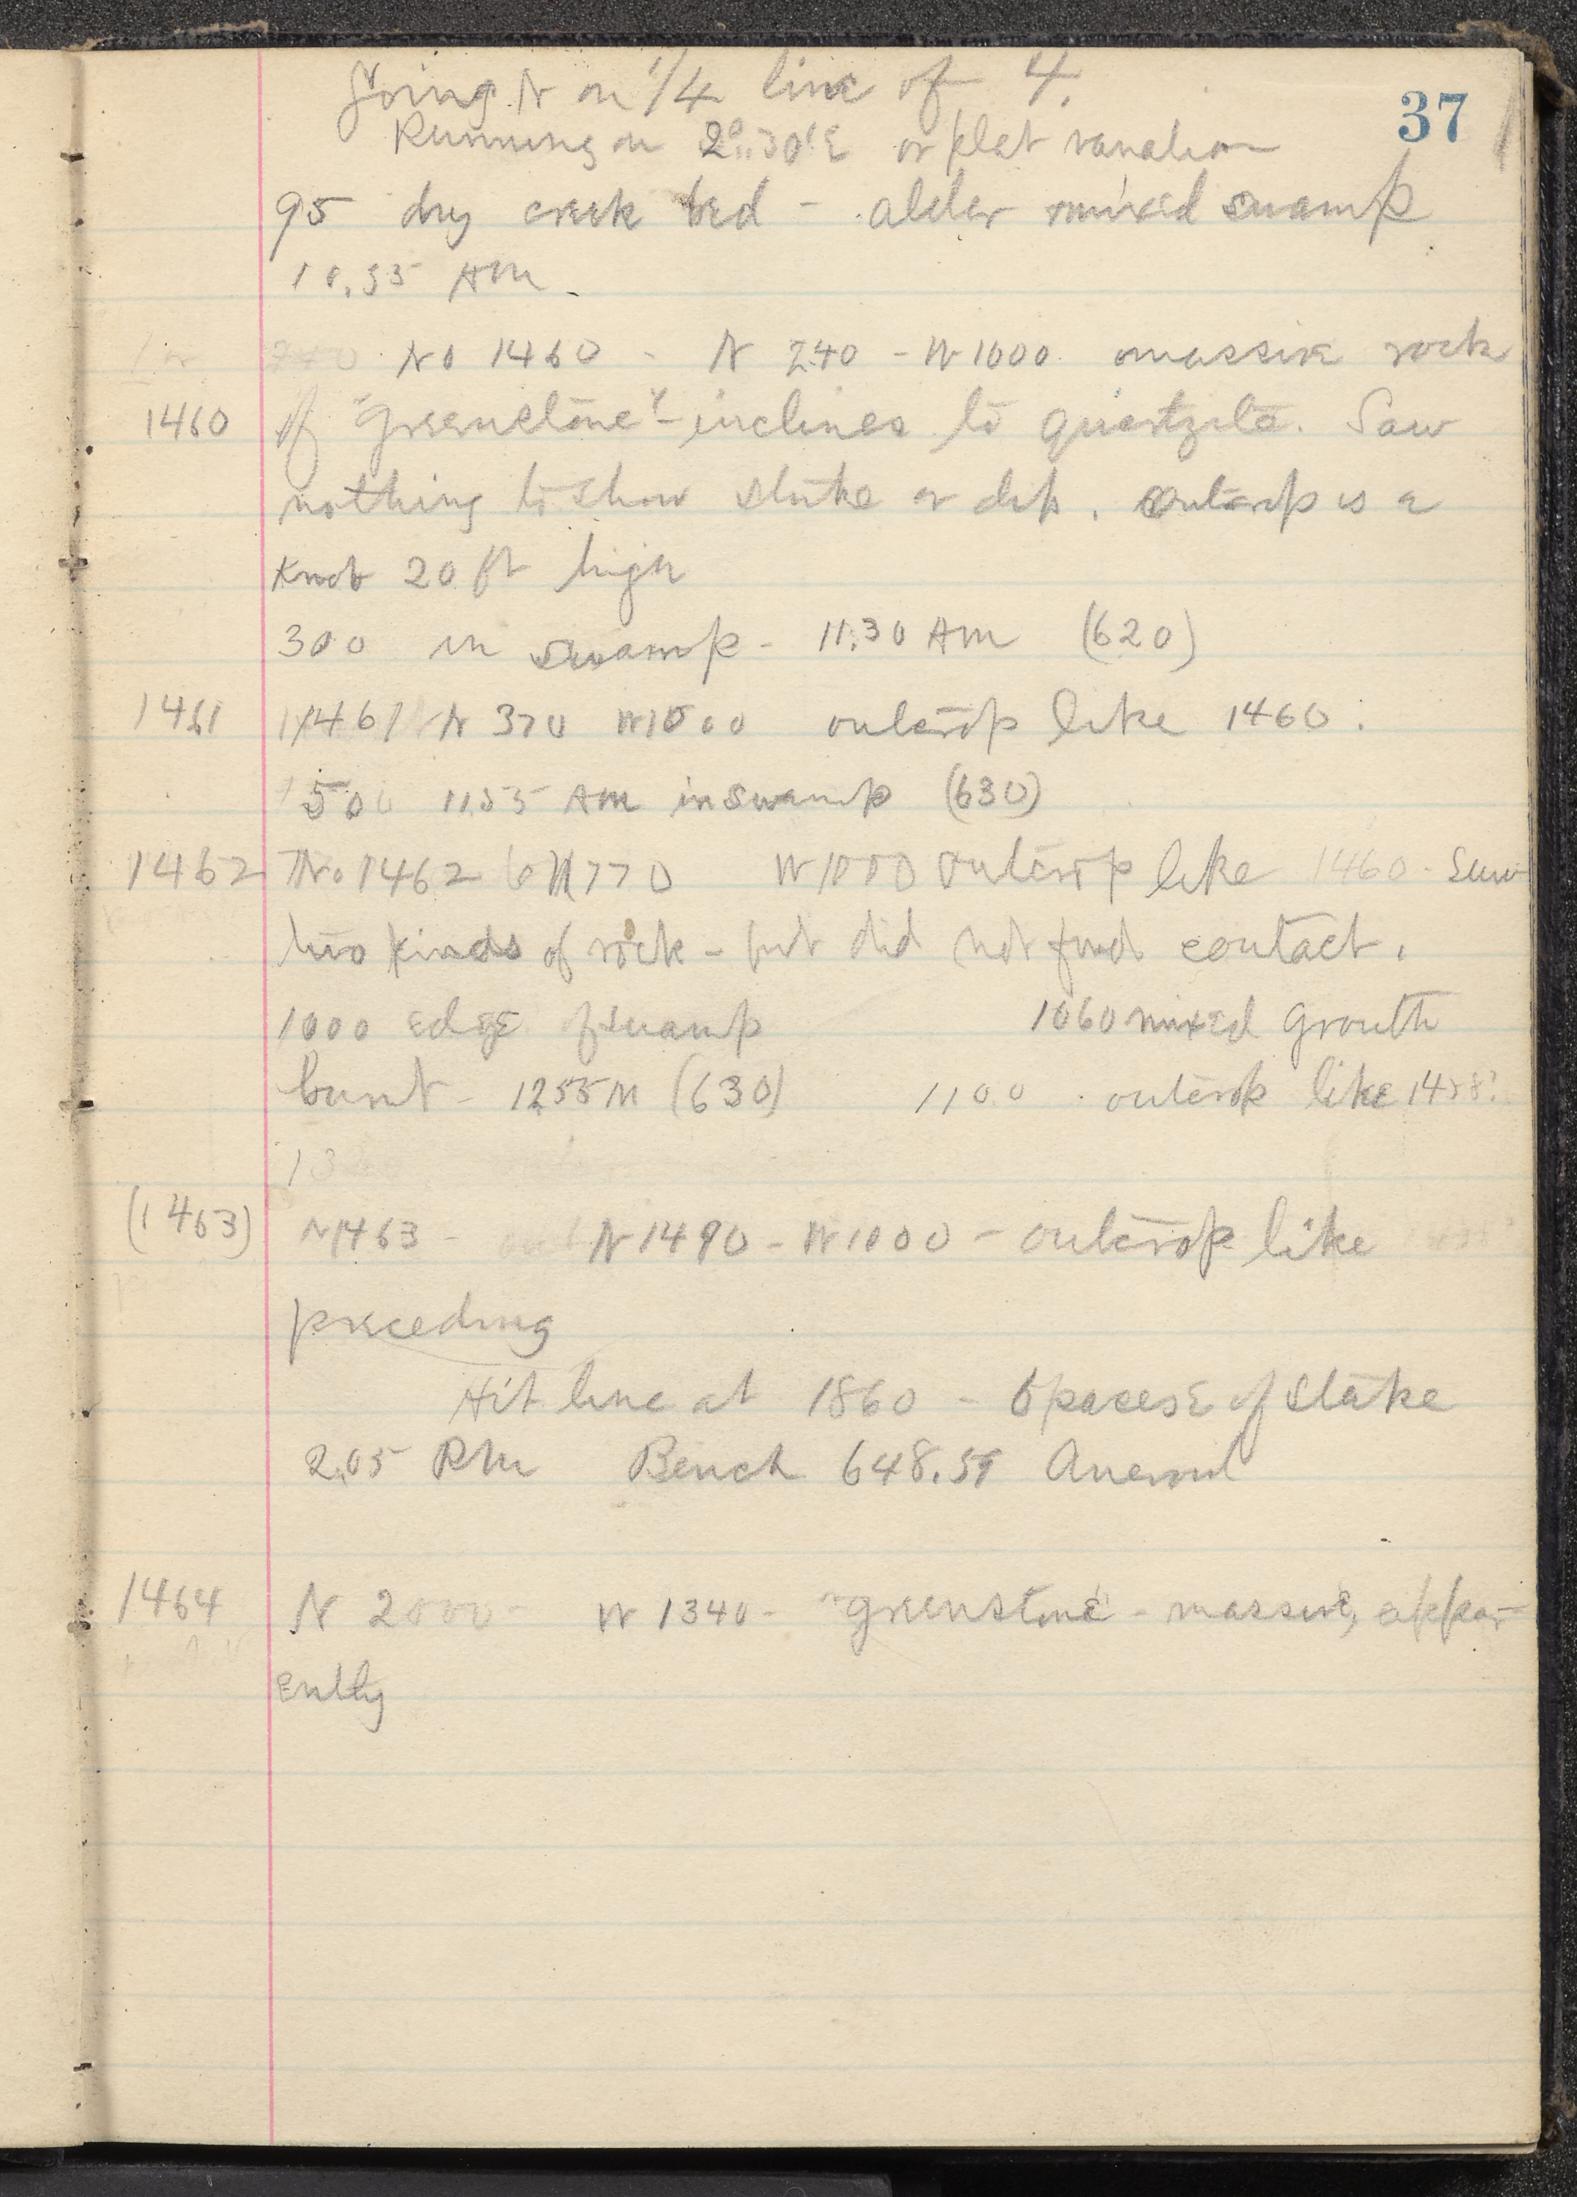 37
Going N on 1/4 line of 4.
Running on 2° 30' E or plat variation
95 dry creek bed - alder mixed swamp
10.55 AM.
No 1460 - N 240 - W 1000 massive rock
1460 of "Greenstone" - inclines to quartzite. Saw
nothing to show strike or dip. Outcrop is a
Knob 20 ft high
300 in swamp - 11.30 AM (620)
1461 1461 N 370 W 1000 outcrop like 1460.
500 11.55 AM in swamp (630)
1462 No 1462 N 770 W 1000 outcrop like 1460 - Saw
two kinds of rock - but did not find contact.
1000 edge of swamp 1060 mixed growth
burnt - 12.55 M (630) 1100 outcrop like
(1463) N 1463 - N 1490 - W 1000 - outcrop like
preceding
Hit line at 1860 - 6 paces E of Stake
2.05 PM Bench 648.59 Aneroid
1464 N 2000 - W 1340 - "greenstone" - massive, appar-
ently